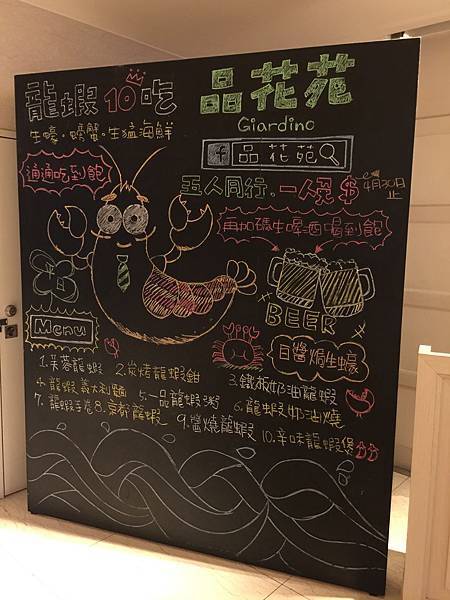 龍蝦10吃
品花苑
Giardino
生蠔。螃蟹。生猛海鮮
f 品花苑
通通吃到飽
五人同行。一人免$
4月30日止
再加碼生啤酒喝到飽
BEER
Menu
白醬焗生蠔
1.芙蓉龍蝦
2.炭烤龍蝦鉗
3.鐵板奶油龍蝦
4.龍蝦義大利麵
5.一品龍蝦粥
6.龍蝦奶油燒
7.龍蝦手卷
8.京都龍蝦
9.醬燒龍蝦
10.辛味龍蝦煲